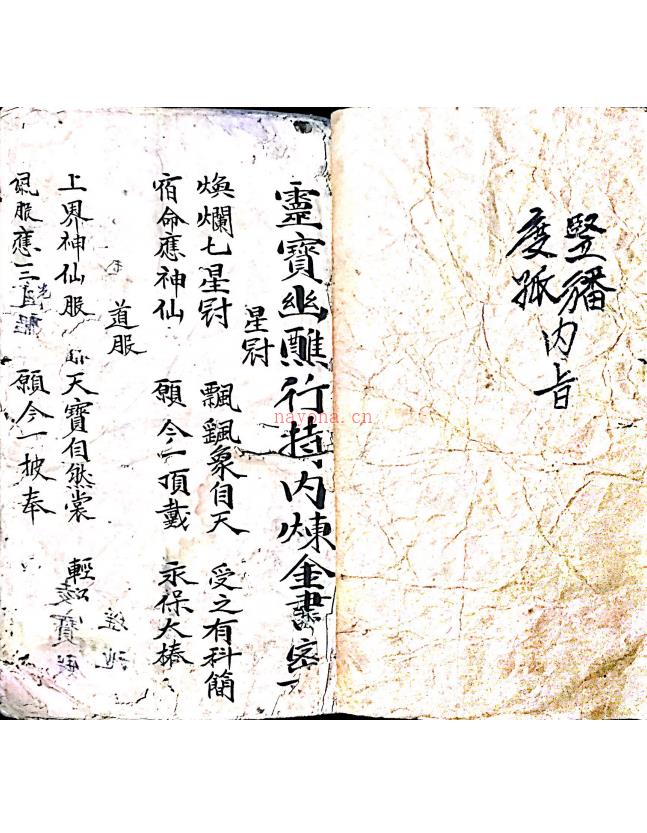 竖旛
度孤內旨
靈寶幽醮行持內煉金書密
星冠
煥爛七星冠 飄飄象自天 受之有科簡
宿命應神仙 願今一頂戴 永保大椿
道服
上界神仙服 天寶自然裳 輕
服應三 願今一披奉
nayona.cn